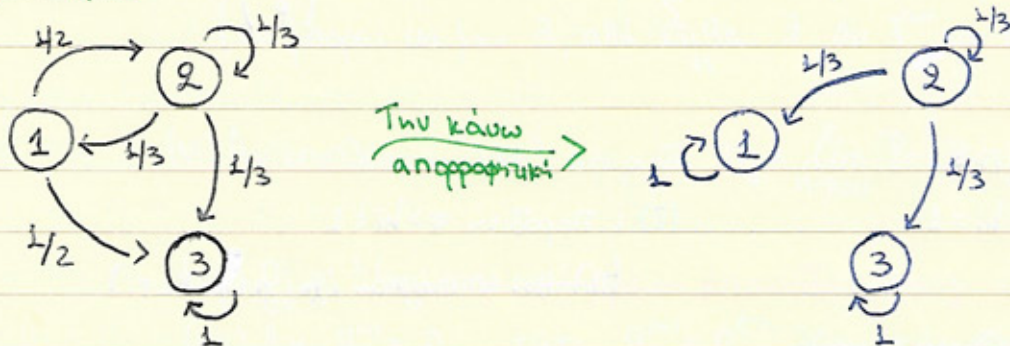 1/2
2
1/3
1
1/3
1/3
1/2
3
1
Την κάνω
απορροφητική
1/3
2
1/3
1
1
1/3
3
1